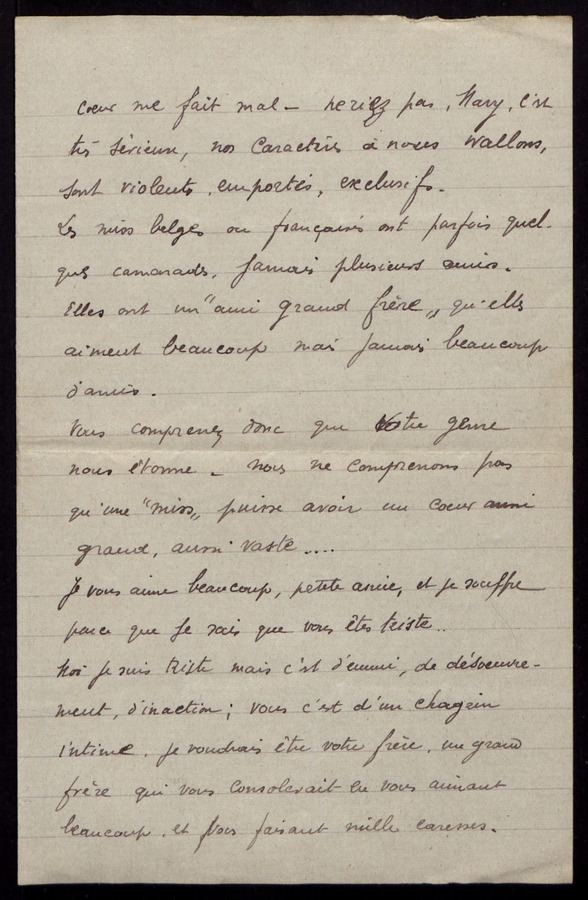 coeur me fait mal - ne riez pas, Mary, c'est
très sérieux, nos caractères à nous wallons,
sont violents, emportés, exclusifs.
Les miss belges ou françaises ont parfois quel-
ques camarades. Jamais plusieurs amis.
Elles ont un "ami grand frère" qu'elles
aiment beaucoup mais jamais beaucoup
d'amis.
Vous comprenez donc que votre genre
nous étonne. Nous ne comprenons pas
qu'une "miss" puisse avoir un coeur aussi
grand, aussi vaste....
Je vous aime beaucoup, petite amie, et je souffre
parce que je sais que vous êtes triste..
Moi je suis triste mais c'est d'ennui, de désoeuvre-
ment, d'inaction; vous c'est d'un chagrin
intime. Je voudrais être votre frère, un grand
frère qui vous consolerait en vous aimant
beaucoup, et vous faisant mille caresses.